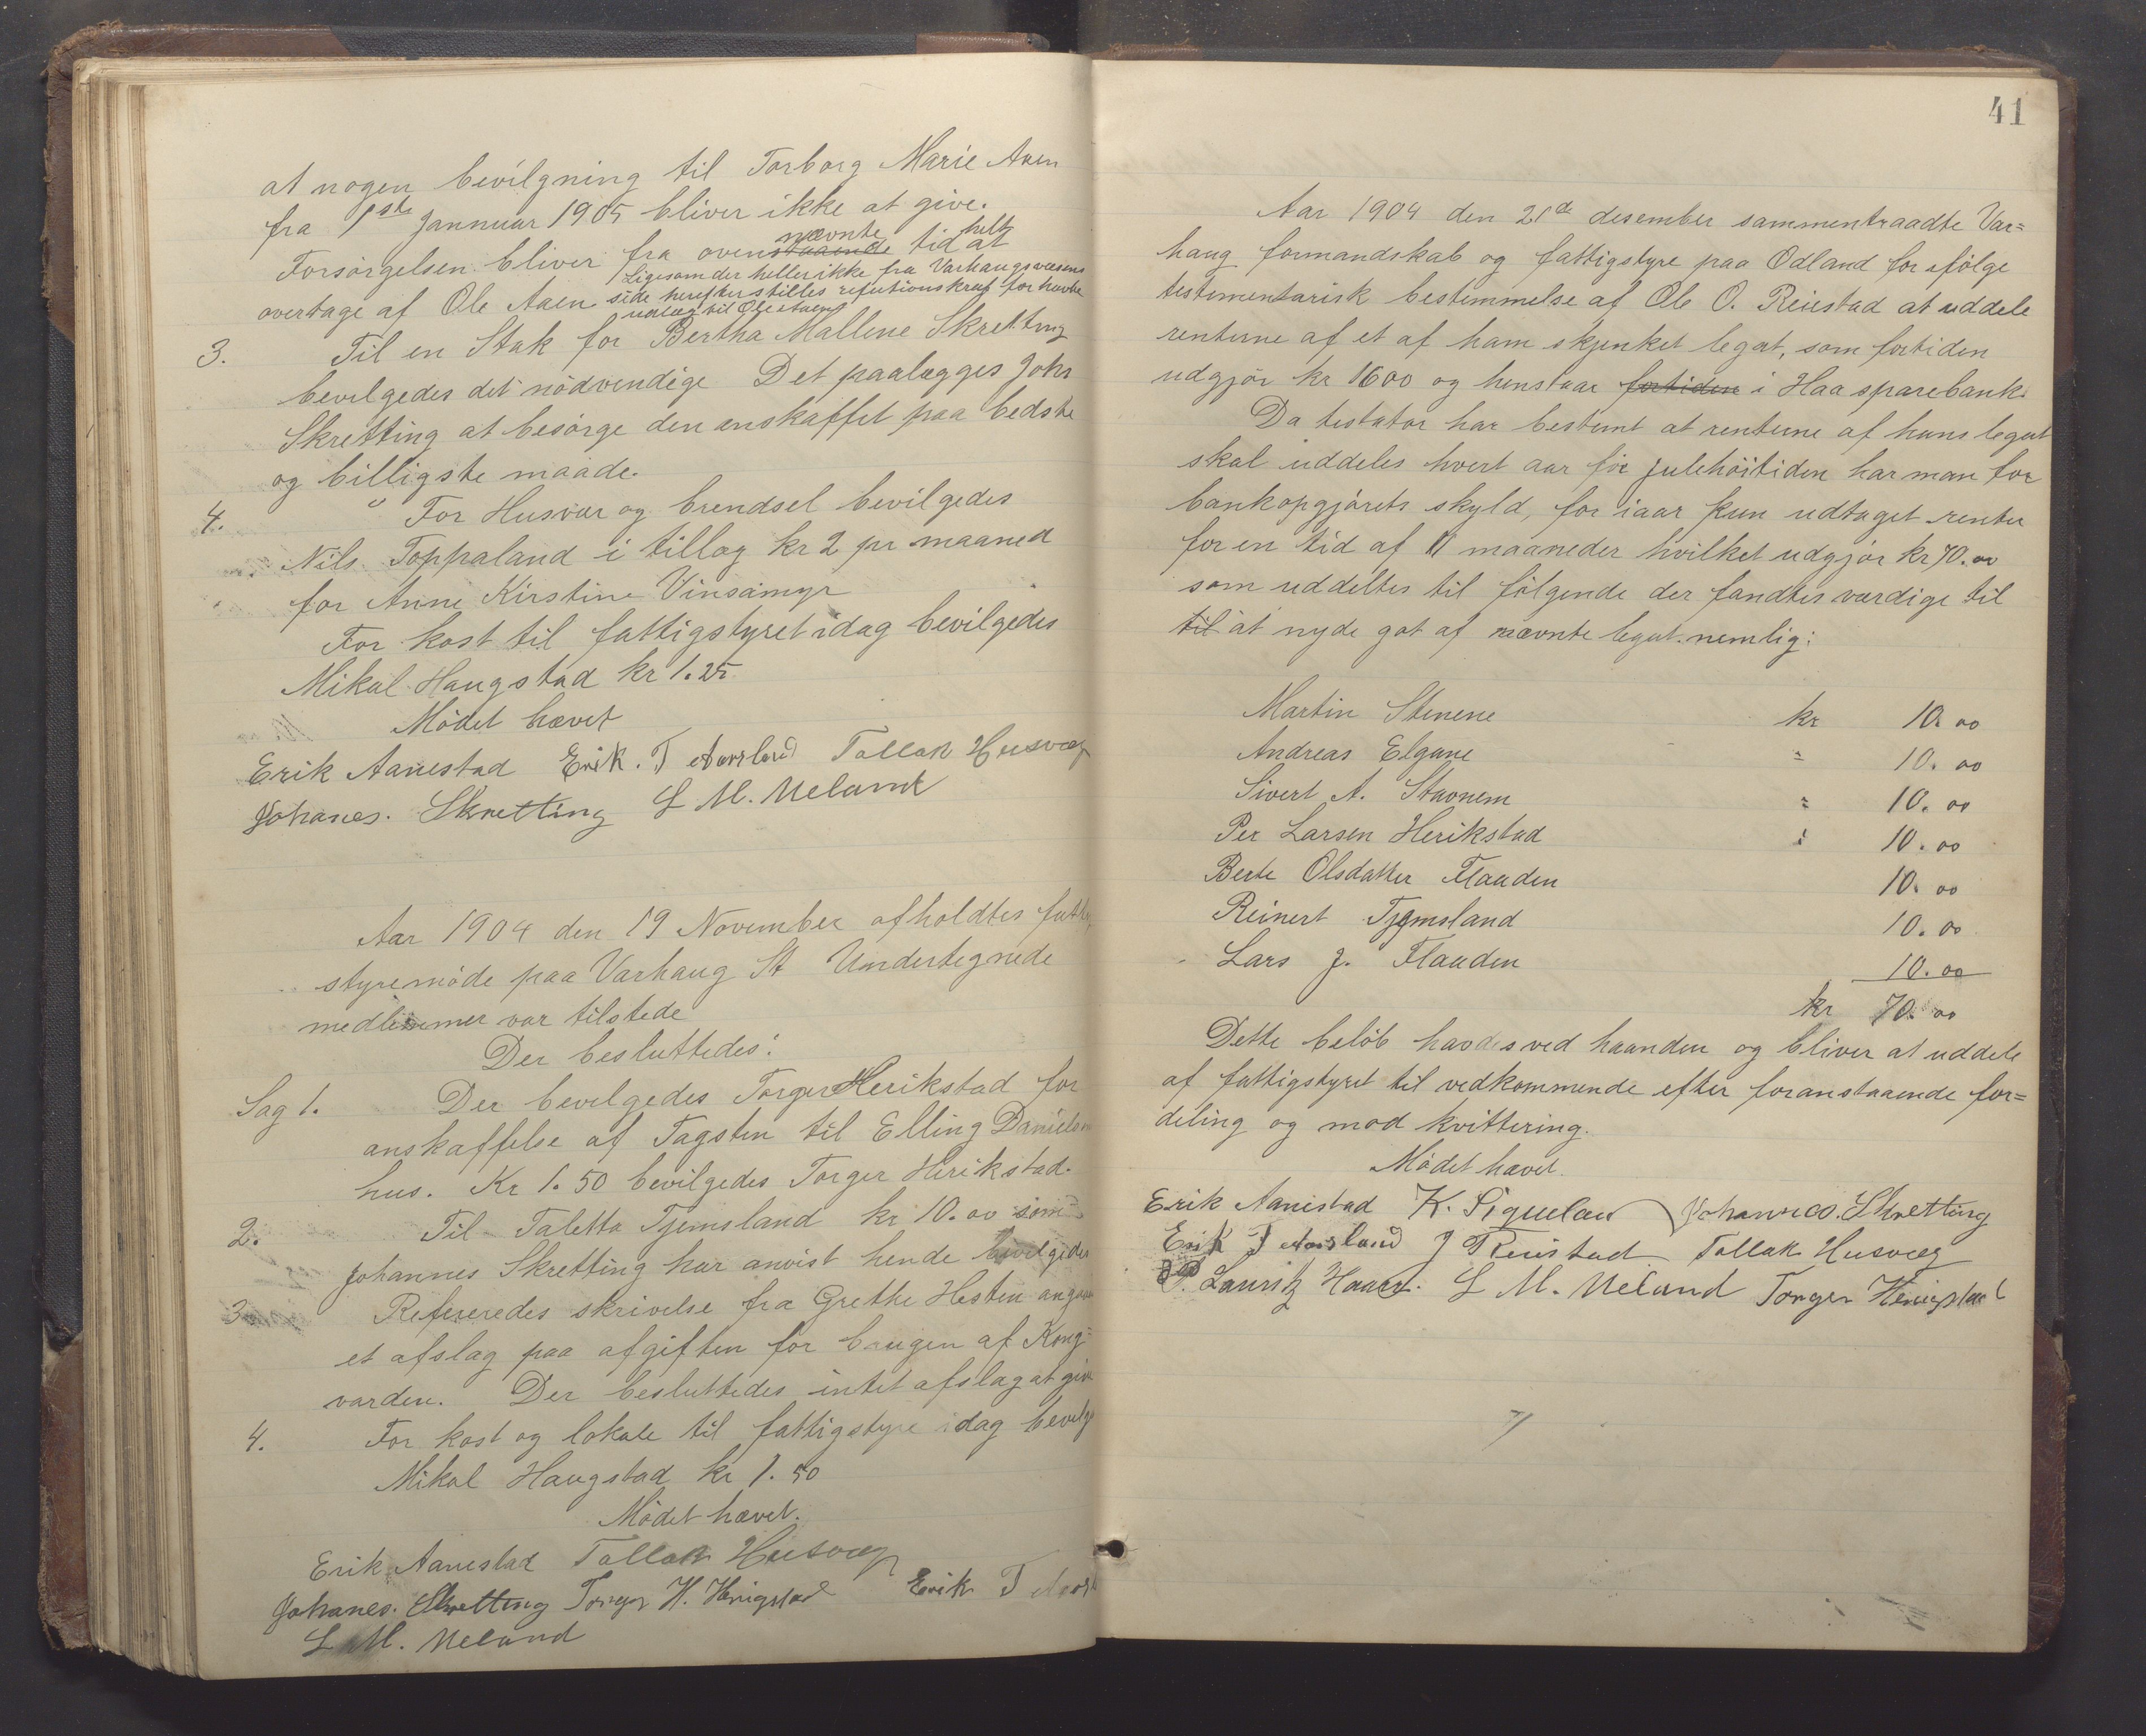 at nogen bevilgning til Torborg Marie Aaen
fra 1ste Jannuar 1905 bliver ikke at give.
Forsörgelsen bliver fra ovenstaaende nævnte tid helt at
overtage af Ole Aaen Ligesom der heller ikke fra Varhaugs væsens
side herefter stilles refutionskrav for havte
udlæg til Ole Aaen
3. Til en Stak for Bertha Mallene Skretting
bevilgedes det nödvendige Det paalægges Johs
Skretting at besörge den anskaffet paa bedste
og billigste maade.
4. For Husvær og brendsel bevilgedes
Nils Toppaland i tillæg kr 2 pr maaned
for Anne Kirstine Vinsamyr
For kost til fattigstyret idag bevilgedes
Mikal Haugstad kr 1.25
Mödet hævet
Erik Aanestad Erik. T Aarsland Tollak Husvæg
Johanes. Skretting L M. Meland
Aar 1904 den 19 November afholdtes fattig
styremöde paa Varhaug St Undertegnede
medlemmer var tilstede
Der besluttedes:
Sag 1. Der bevilgedes Torger Herikstad for
anskaffelse af Tagsten til Elling Danielsen
hus. Kr 1.50 bevilgedes Torger Herikstad.
2. Til Taletta Tjemsland kr 10.00 som
Johannes Skretting har anvist hende bevilgedes
3. Refereredes skrivelse fra Grethe Hesten angaaende
et afslag paa afgiften for brugen af Kong-
varden. Der besluttedes intet afslag at give
4. For kost og lokale til fattigstyre idag bevilge
Mikal Haugstad kr 1.50
Mödet hævet.
Erik Aanestad Tollak Husvæg
Johanes. Skretting Torger H. Herigstad Erik T Aarsl
L M. Meland
41
Aar 1904 den 21de desember sammentraadte Var=
haug formandskab og fattigstyre paa Odland for ifölge
testementarisk bestemmelse af Ole O. Reiestad at uddele
renterne af et af ham skjenket legat, som fortiden
udgjör kr 1600 og henstaar fortiden i Haa sparebank.
Da testator har bestemt at renterne af hans legat
skal uddeles hvert aar för julehöitiden har man for
bankopgjörets skyld, for iaar kun udtaget renter
for en tid af 11 maaneder hvilket udgjör kr 70.00
som uddeltes til fölgende der fandtes værdige til
til at nyde got af nævnte legat. nemlig:
Martin Stenene kr 10.00
Andreas Elgane " 10.00
Sivert A. Stavnem " 10.00
Per Larsen Herikstad " 10.00
Berte Olsdatter Flaaden 10.00
Reinert Tjemsland 10.00
Lars J. Flaaden 10.00
kr 70.00
Dette belöb havdes ved haanden og bliver at uddele
af fattigstyret til vedkommende efter foranstaaende for=
deling og mod kvittering.
Mödet hævet.
Erik Aanestad K. Siquelan Johannes. Skretting
Erik T Aarsland J Reiestad Tollak Husvæg
P. Lauritz Haaer. L M. Meland Torger Herigstad